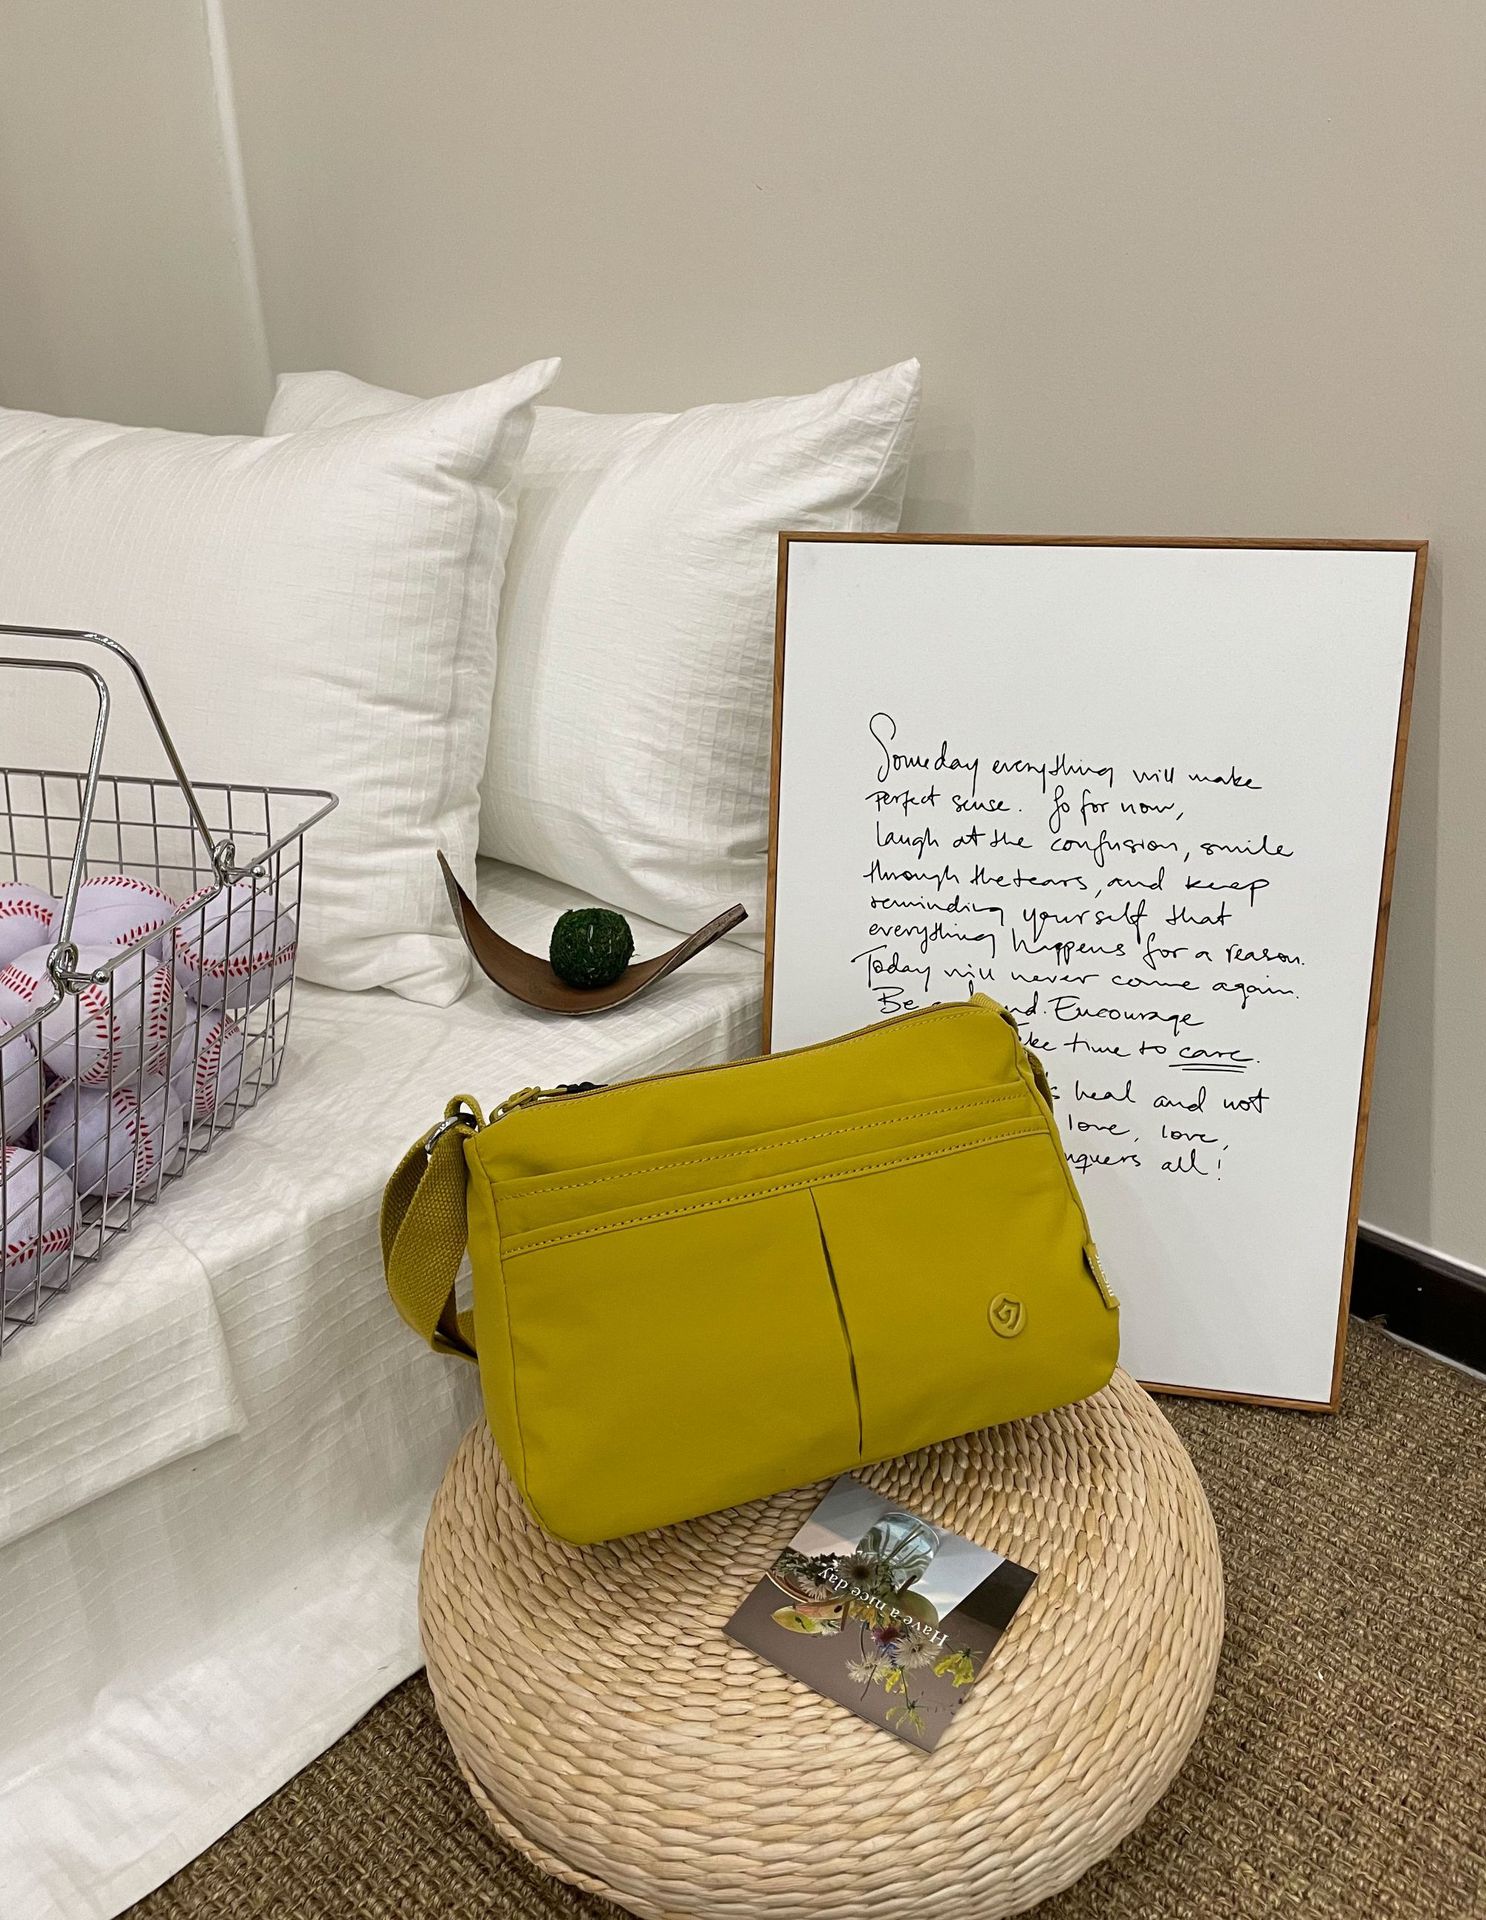 Someday everything will make
perfect sense. So for now,
laugh at the confusion, smile
through the tears, and keep
reminding yourself that
everything happens for a reason.
Today will never come again.
Be nd. Encourage
time to care.
heal and not
love, love,
all!
Have a nice day